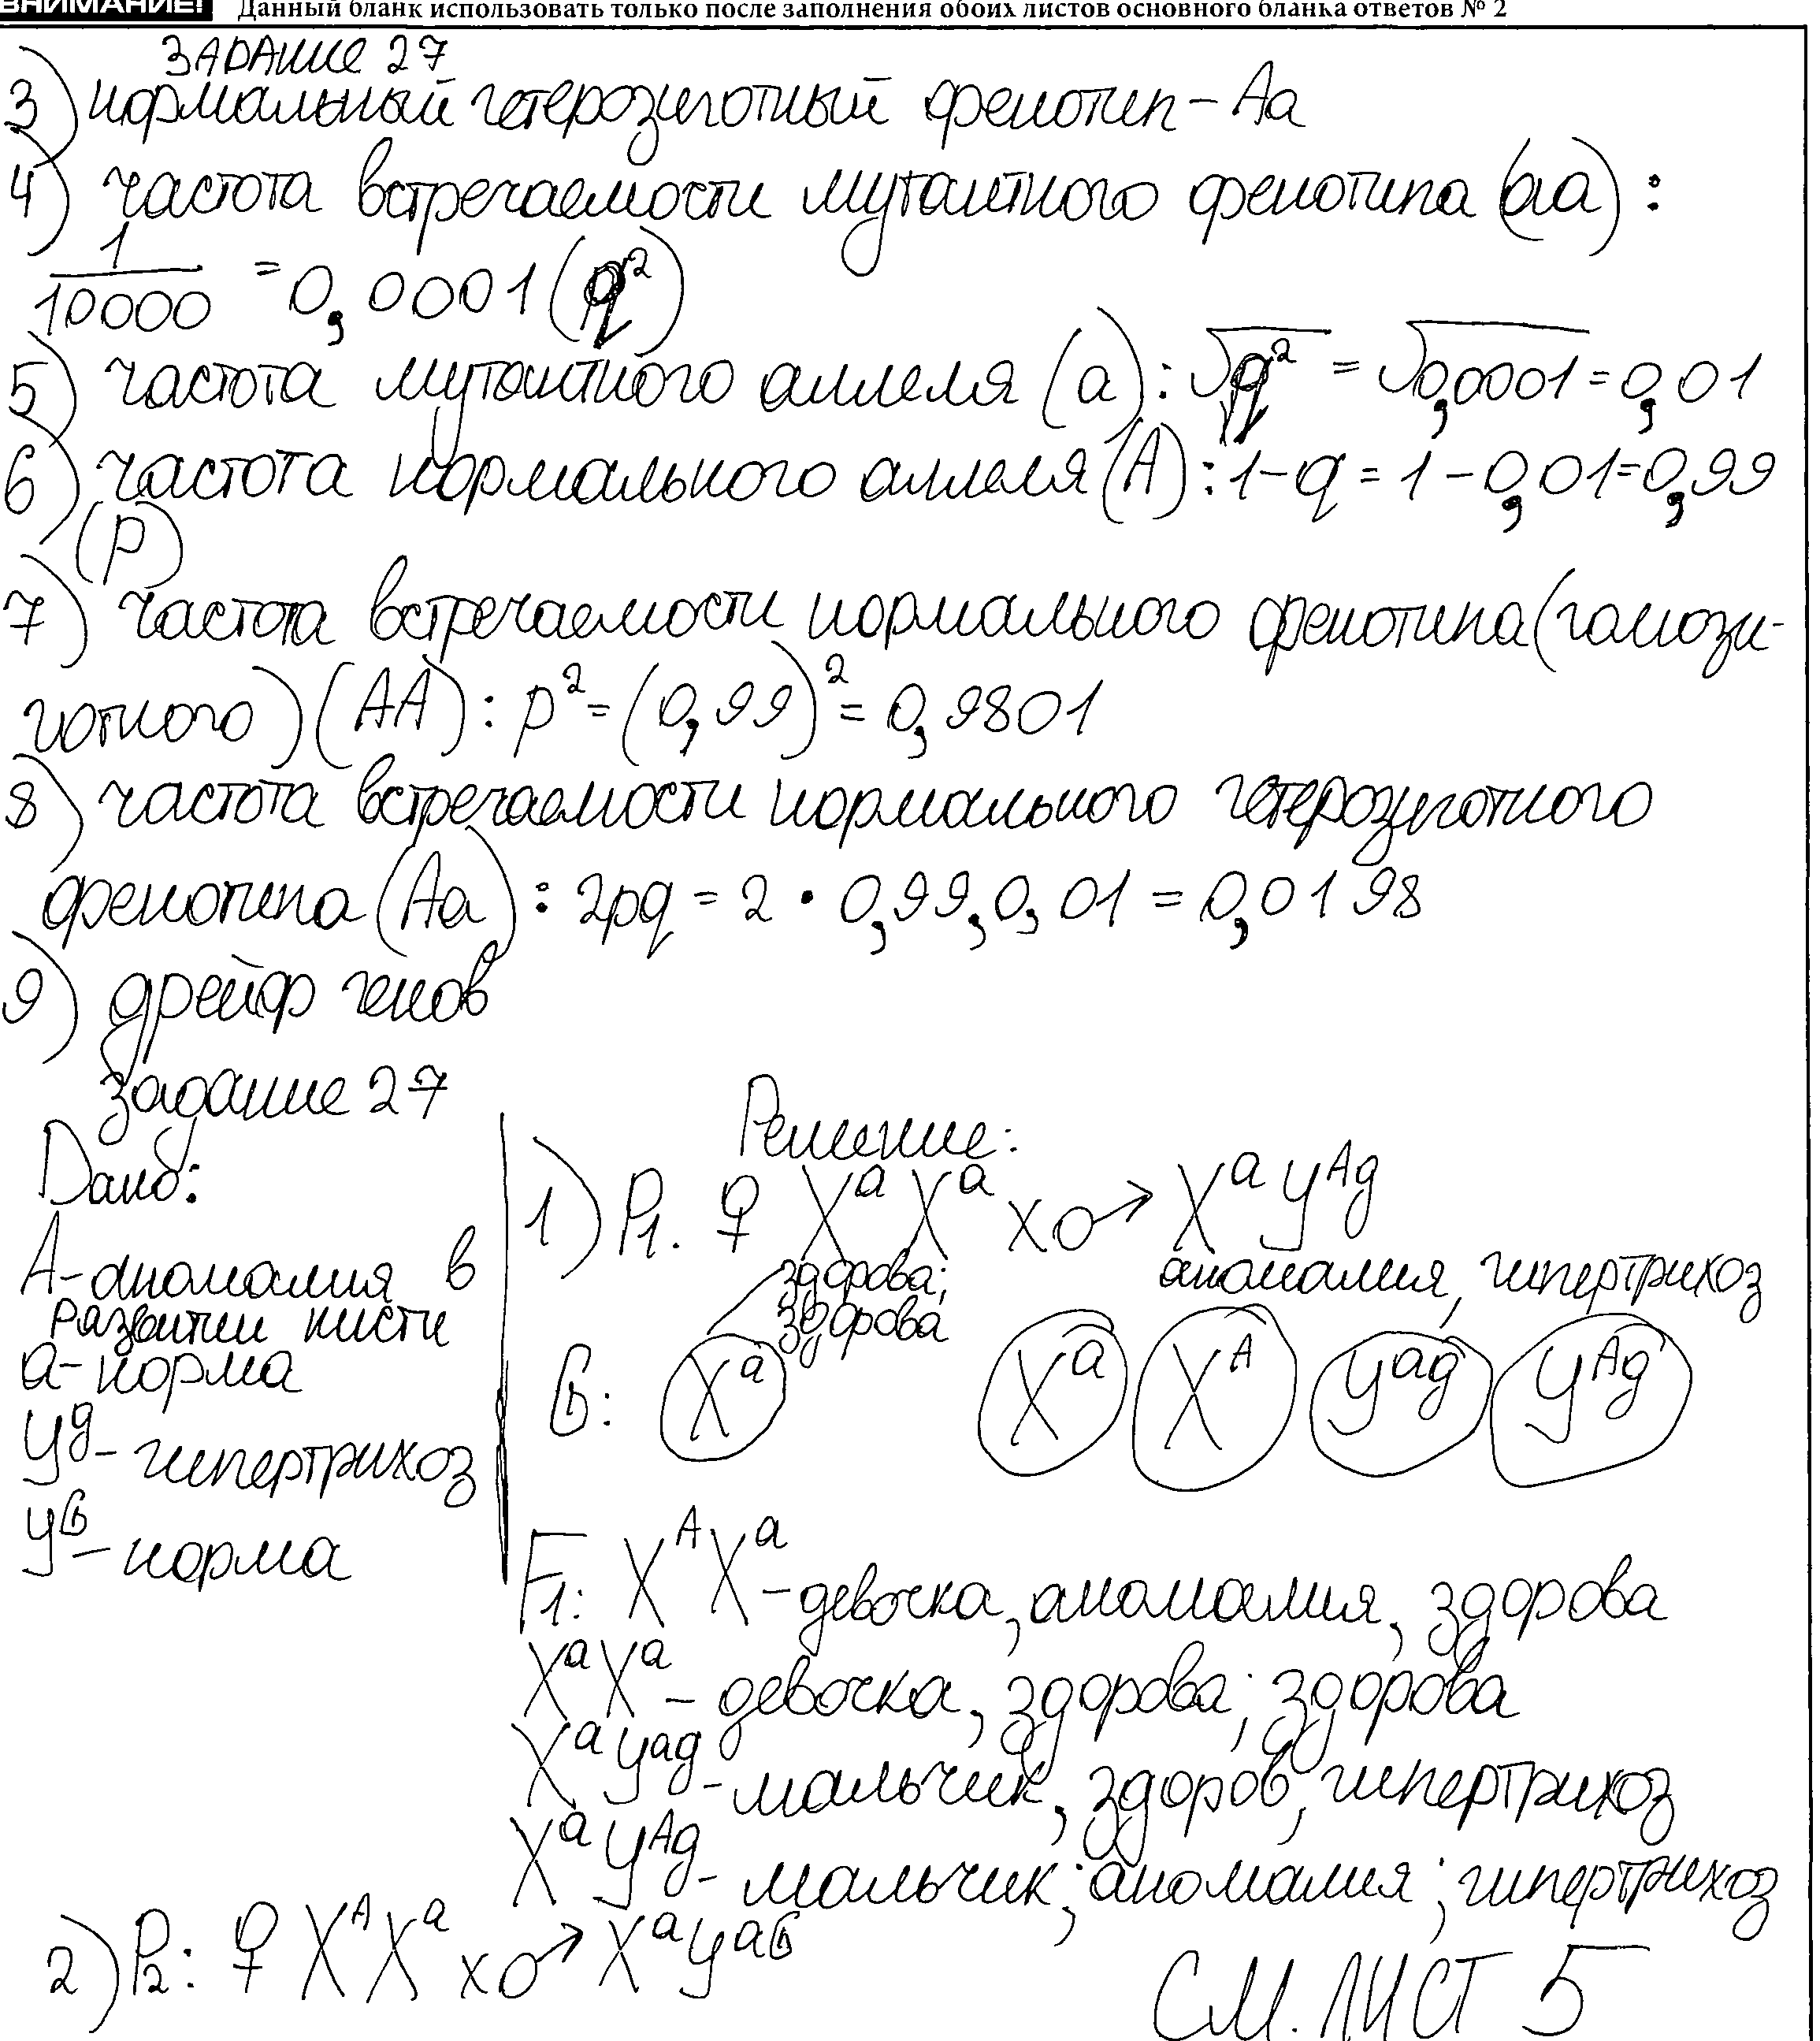 ВНИМАНИЕ! Данный бланк использовать только после заполнения обоих листов основного бланка ответов № 2
ЗАДАНИЕ 27
3) нормальный гетерозиготный фенотип – Aa
4) частота встречаемости мутантного фенотипа (aa) :
1/10000 = 0,0001 (q²)
5) частота мутантного аллеля (a) : √q² = √0,0001 = 0,01
6) частота нормального аллеля (A) : 1 – q = 1 – 0,01 = 0,99
(p)
7) частота встречаемости нормального фенотипа (гомози-
готного) (AA) : p² = (0,99)² = 0,9801
8) частота встречаемости нормального гетерозиготного
фенотипа (Aa) : 2pq = 2 · 0,99 · 0,01 = 0,0198
9) дрейф генов
Задание 27
Дано:
A – аномалия в
развитии кисти
a – норма
Yᵍ – гипертрихоз
Yᴳ – норма
Решение:
1) P₁. ♀ XᵃXᵃ x ♂ XᵃYᴬᵍ
здорова; аномалия, гипертрихоз
здорова
G: Xᵃ Xᵃ Xᴬ Yᵃᵍ Yᴬᵍ
F₁: XᴬXᵃ – девочка, аномалия, здорова
XᵃXᵃ – девочка, здорова; здорова
XᵃYᵃᵍ – мальчик, здоров, гипертрихоз
XᵃYᴬᵍ – мальчик; аномалия; гипертрихоз
2) P₂: ♀ XᴬXᵃ x ♂ XᵃYᵃᴳ
СМ. ЛИСТ 5